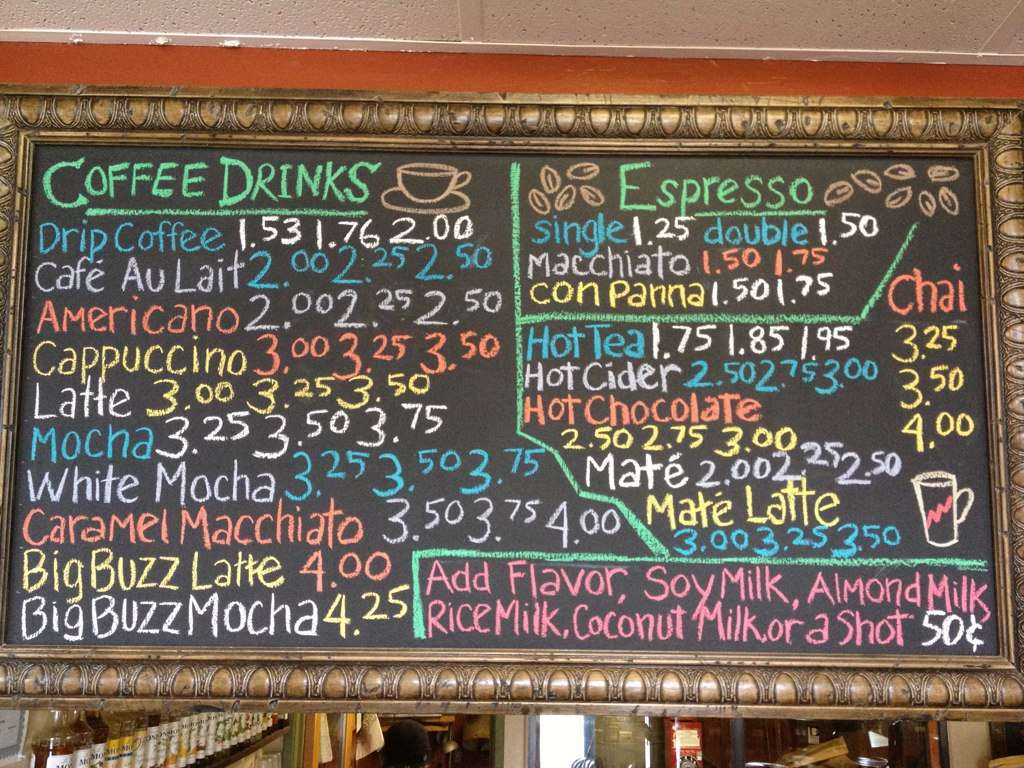 COFFEE DRINKS
Drip Coffee 1.53 1.76 2.00
Café Au Lait 2.00 2.25 2.50
Americano 2.00 2.25 2.50
Cappuccino 3.00 3.25 3.50
Latte 3.00 3.25 3.50
Mocha 3.25 3.50 3.75
White Mocha 3.25 3.50 3.75
Caramel Macchiato 3.50 3.75 4.00
Big Buzz Latte 4.00
Big Buzz Mocha 4.25
Espresso
single 1.25 double 1.50
Macchiato 1.50 1.75
con Panna 1.50 1.75
Chai
3.25
3.50
4.00
Hot Tea 1.75 1.85 1.95
Hot Cider 2.50 2.75 3.00
Hot Chocolate
2.50 2.75 3.00
Maté 2.00 2.25 2.50
Maté Latte
3.00 3.25 3.50
Add Flavor, Soy Milk, Almond Milk
Rice Milk, Coconut Milk, or a Shot 50¢